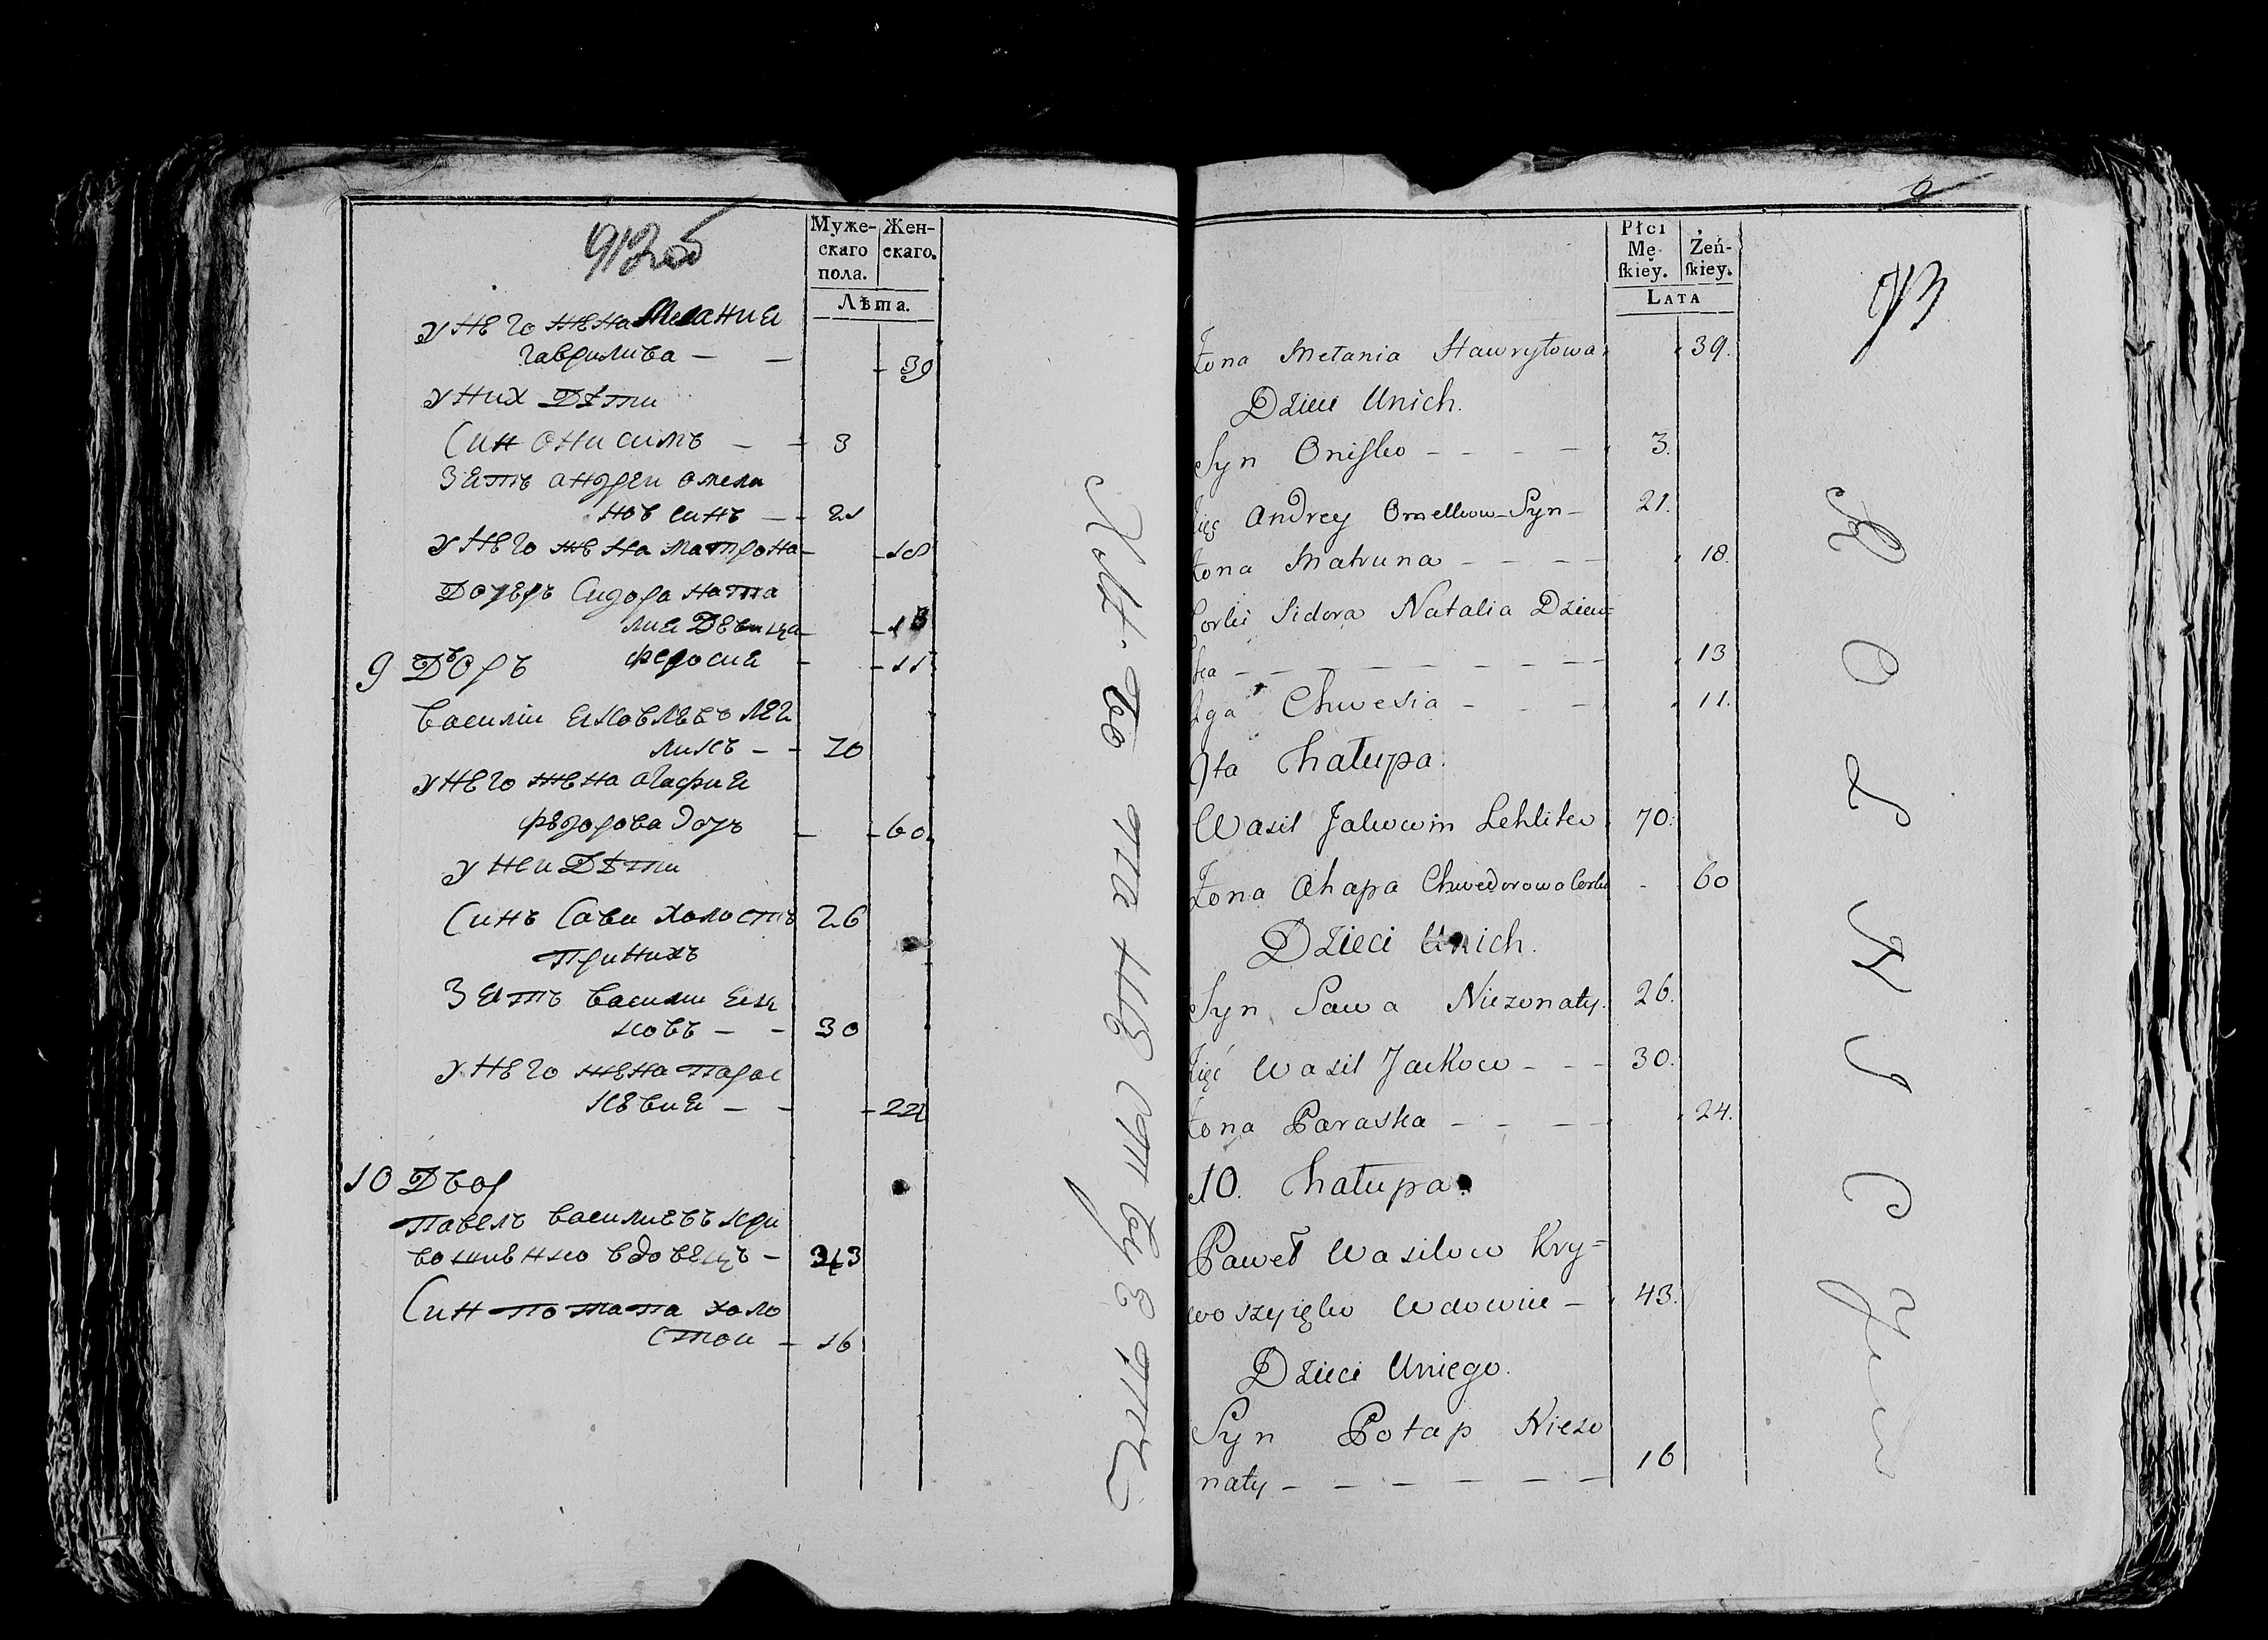 912об
Муже-
скаго
пола.
Жен-
скаго.
Лѣта.
у него жена Мелания
гаврилива — — 39
у них дѣти
Син Онисимъ — — 3
Зятъ андреи омеля
нов синъ — — 21
у него жена матрона — 18
дочеръ Сидора ната
лия девица — 13
федосия — 11
9 дворъ
василии яковлевъ лег
ликъ — — 70
у него жена агафия
федорова дочъ — 60
у неи дѣти
Синъ Сава холостъ 26
при нихъ
Зятъ василии яц
ковъ — — 30
у него жена парас
кевия — — 24
10 двор
павелъ василиевъ кри
вошиенко вдовецъ — 43
Син потапа холо
стои — 16
Płci
Mę-
ſkiey.
Żeń-
ſkiey.
LATA
93
Żona Mełania Hawryłowa 39.
Dzieci Unich.
Syn Oniſko — — — — 3.
Zięć Andrey Omelkow Syn — 21.
Żona Matruna — — — — 18.
Corki Sidora Natalia Dziew=
ka — — — — — — 13
2ga Chwesia — — — 11.
9ta Chałupa.
Wasil Jakowin Lehliko 70.
Żona Ahapa Chwedorowa Corka 60
Dzieci Unich.
Syn Sawa Niezonaty. 26.
Zięć Wasil Jackow — — — 30.
Żona Paraska — — — — 24.
10. Chałupa.
Paweł Wasilow Kry=
woszyięko Wdowiec — 43.
Dzieci Uniego.
Syn Potap Niezo
naty — — — — — — 16